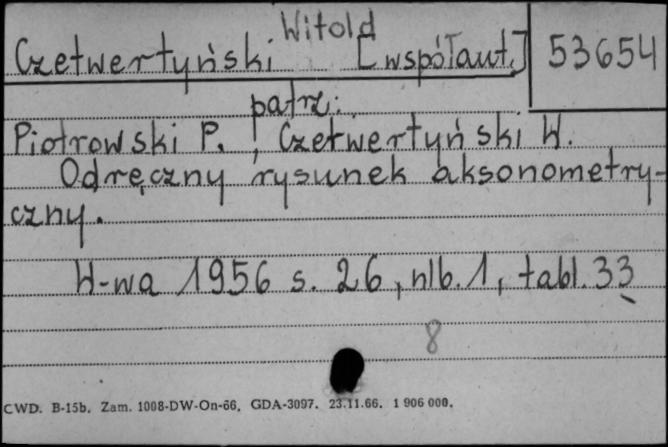 Witold
Czetwertyński [współaut.] 53654
patrz:
Piotrowski P., Czetwertyński W.
Odręczny rysunek aksonometry-
czny.
W-wa 1956 s. 26, nlb. 1, tabl. 33
8
CWD. B-15b. Zam. 1008-DW-On-66. GDA-3097. 23.11.66. 1 906 000.